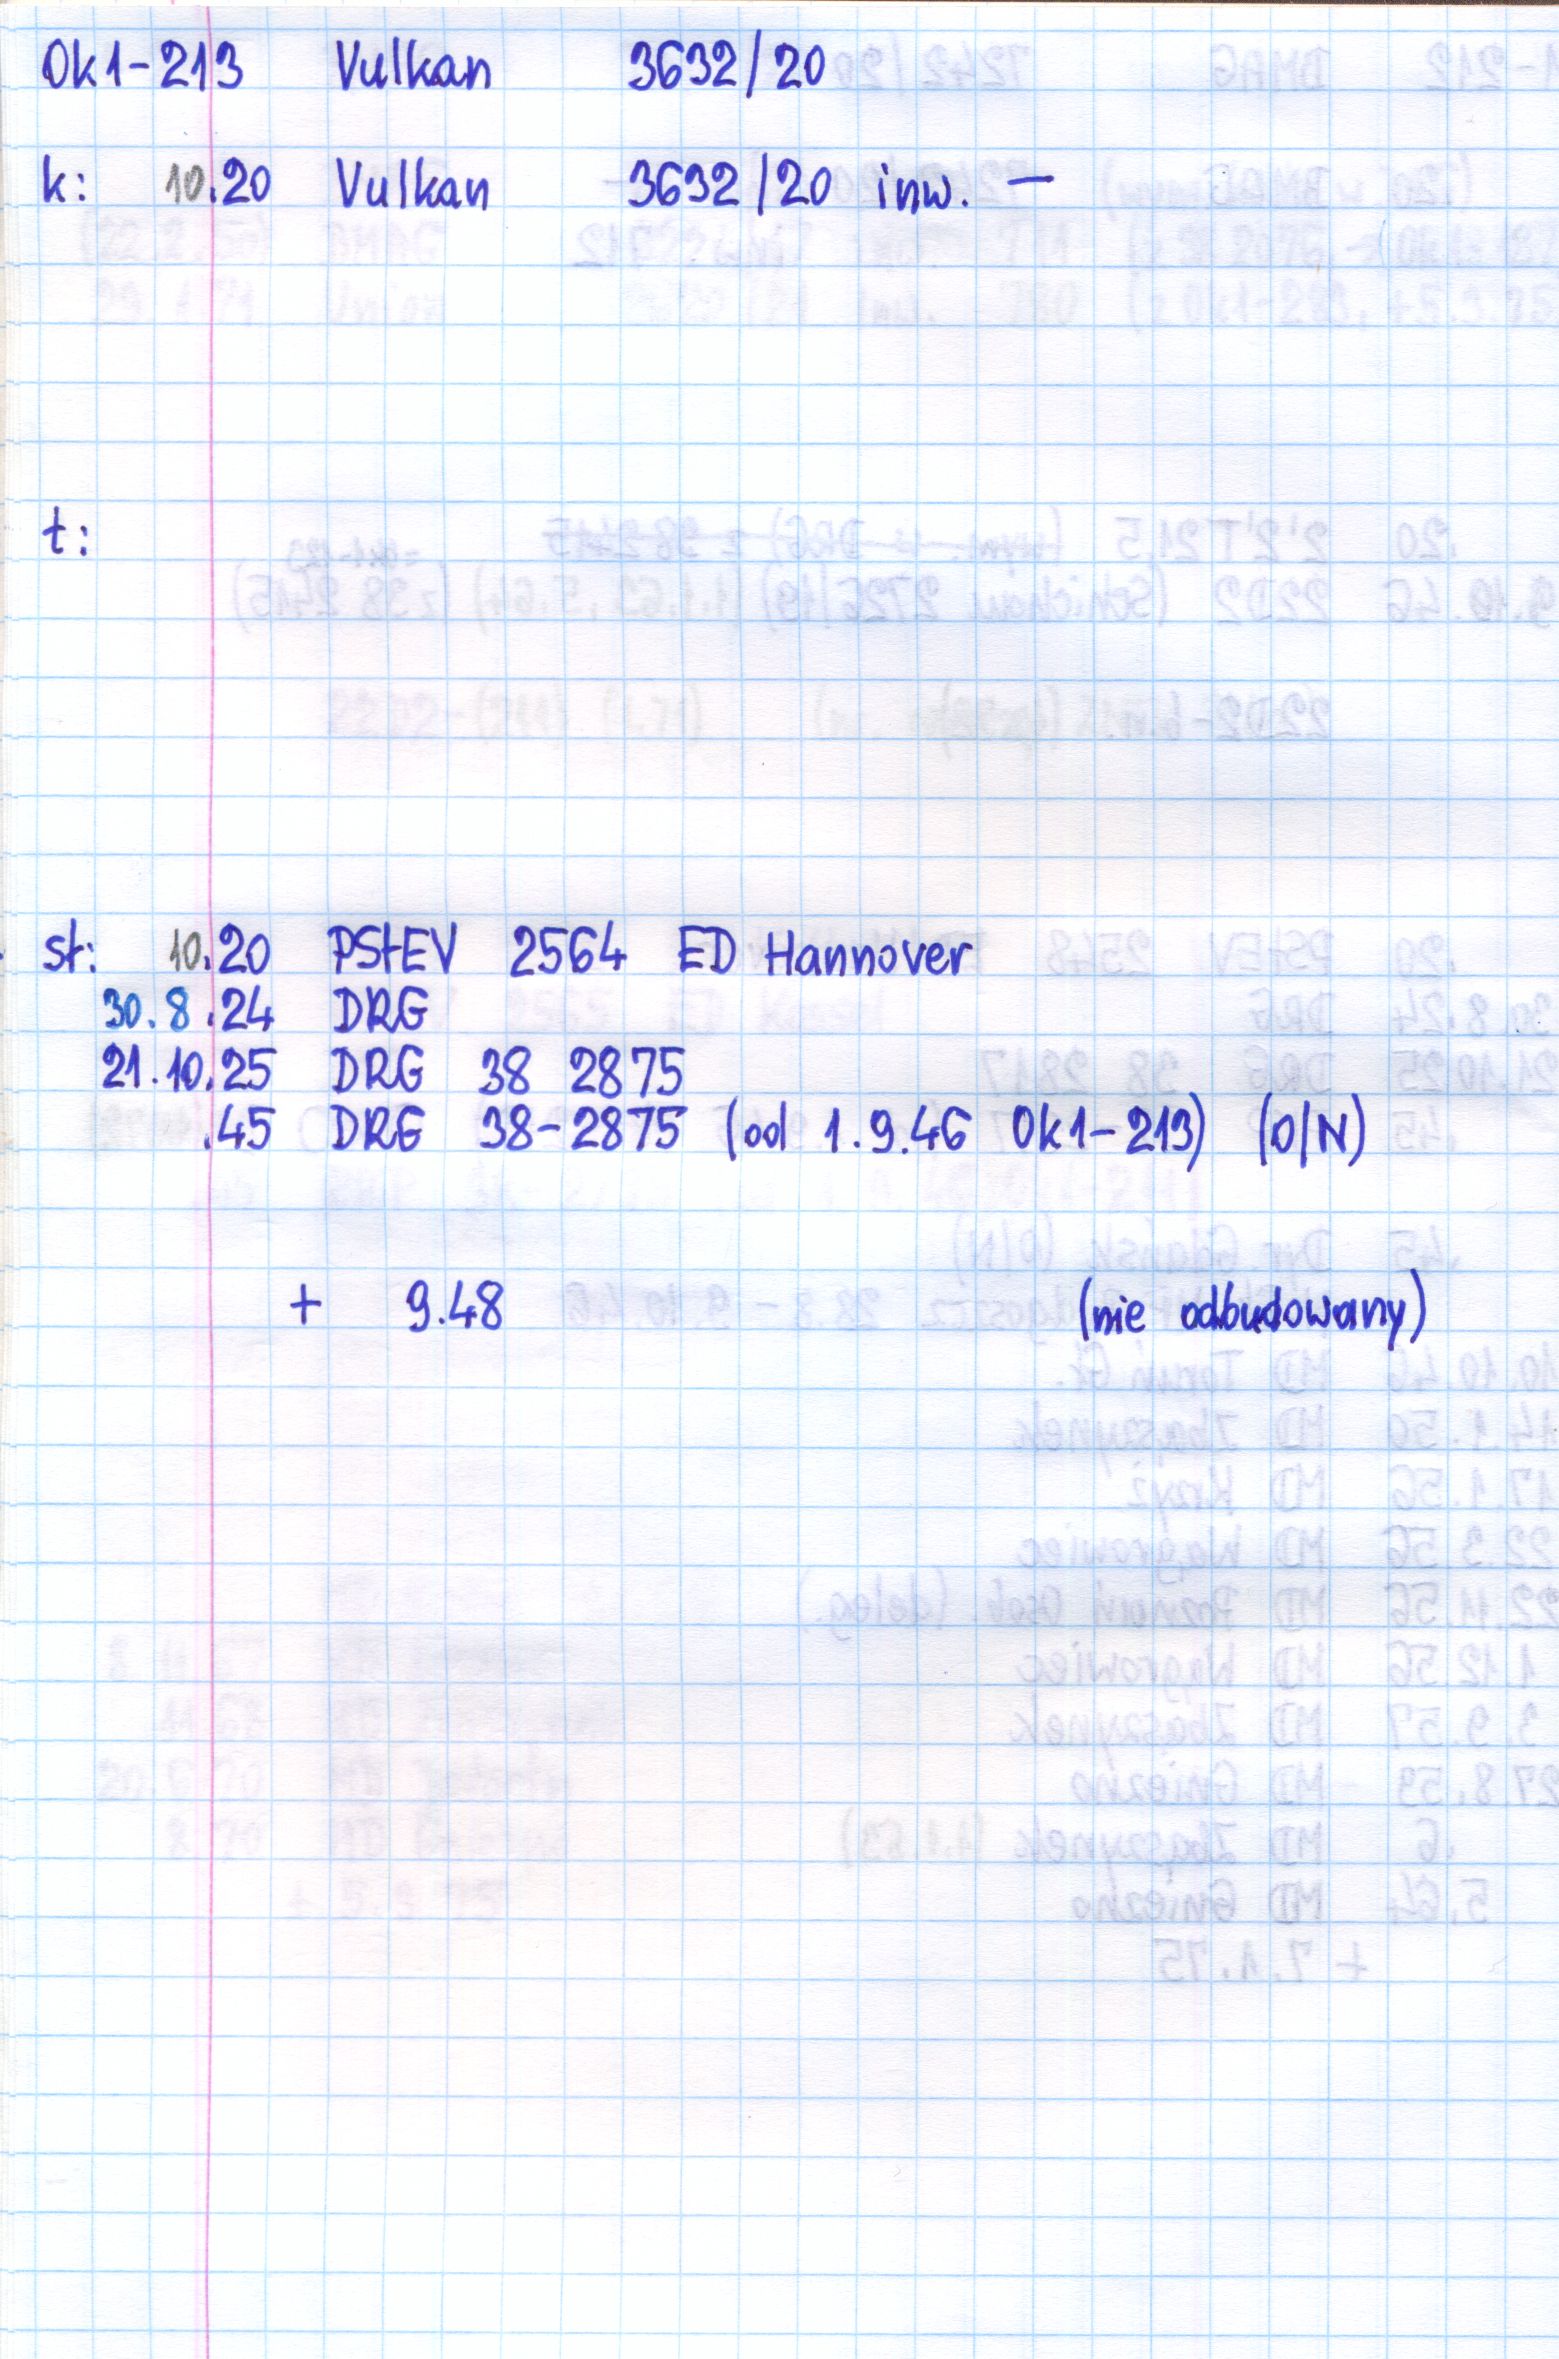 Ok1-213 Vulkan 3632/20
k: 10.20 Vulkan 3632/20 inw. —
t:
st: 10.20 PStEV 2564 ED Hannover
30.8.24 DRG
21.10.25 DRG 38 2875
.45 DRG 38-2875 (od 1.9.46 Ok1-213) (O/N)
+ 9.48 (nie odbudowany)